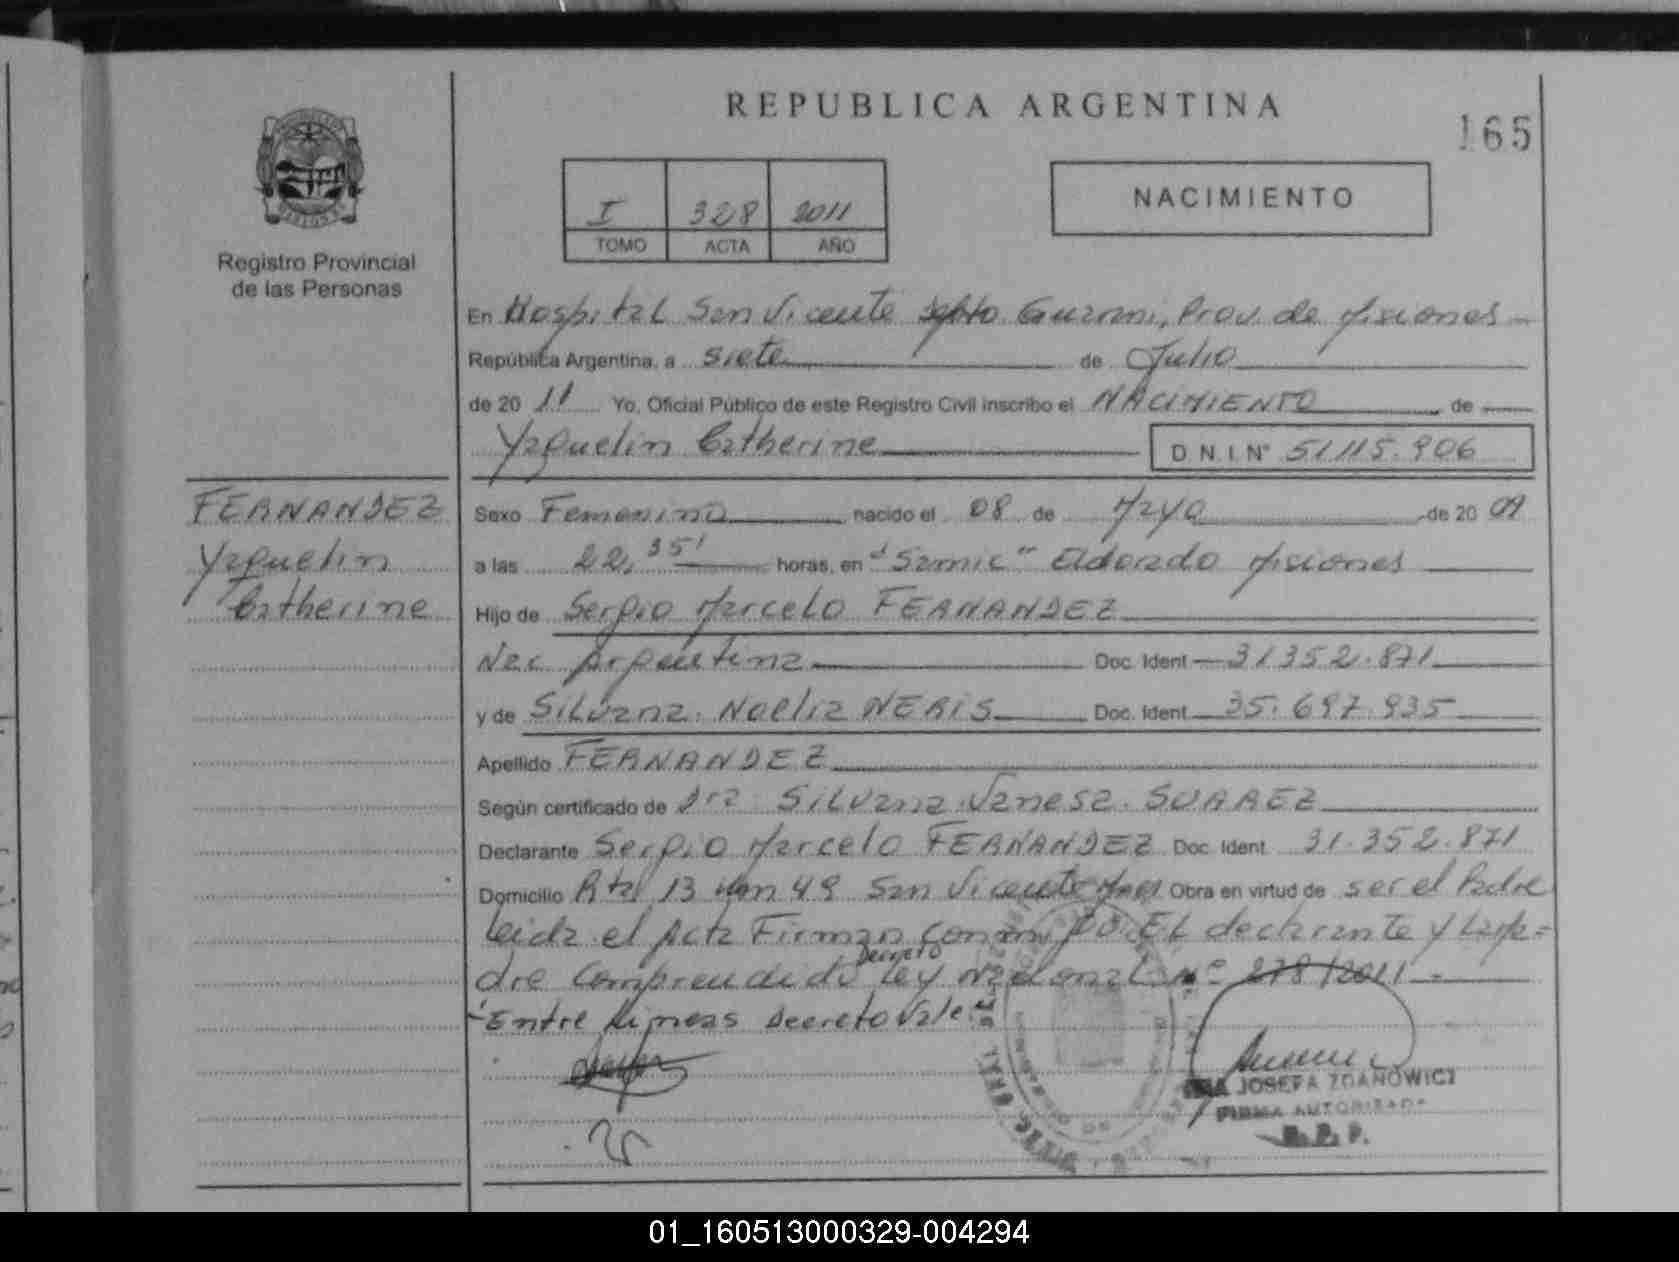 REPUBLICA ARGENTINA
165
I 328 2011
TOMO ACTA AÑO
NACIMIENTO
Registro Provincial
de las Personas
En Hospital San Vicente Dpto Guarani, Prov. de Misiones
República Argentina, a siete de Julio
de 20 11 Yo, Oficial Público de este Registro Civil inscribo el NACIMIENTO de
Yaquelin Catherine D.N.I. Nº 51.115.906
FERNANDEZ
Yaquelin
Catherine
Sexo Femenino nacido el 08 de Mayo de 20 09
a las 22,35' horas, en "Samic" Eldorado Misiones
Hijo de Sergio Marcelo FERNANDEZ
Nac Argentina Doc. Ident 31352.871
y de Silvana Noelia NERIS Doc. Ident 35.697.935
Apellido FERNANDEZ
Según certificado de Dra Silvana Vanesa SUAREZ
Declarante Sergio Marcelo FERNANDEZ Doc. Ident. 31.352.871
Domicilio Rta 13 km 49 San Vicente Mnes Obra en virtud de ser el Padre
Leida el Acta Firman conmigo EL declarante y La Ma=
Decreto
dre Comprendido Ley Nacional Nº 278/2011
Entre Lineas Decreto Vale
JOSEFA ZDANOWICZ
FIRMA AUTORIZADA
R.P.P.
01_160513000329-004294